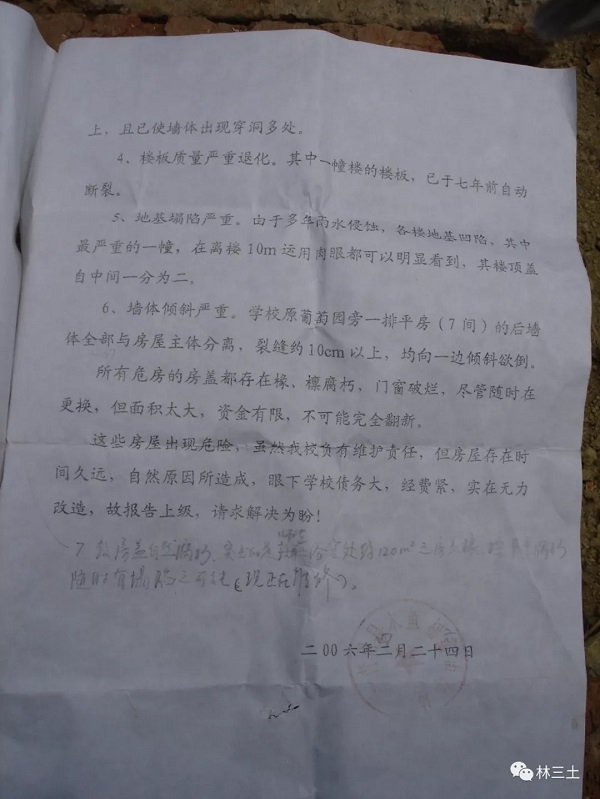 上，且已使墙体出现穿洞多处。
4、楼板质量严重退化。其中一幢楼的楼板，已于七年前自动
断裂。
5、地基塌陷严重。由于多年雨水侵蚀，各楼地基凹陷，其中
最严重的一幢，在离楼10m运用肉眼都可以明显看到，其楼顶盖
自中间一分为二。
6、墙体倾斜严重。学校原葡萄园旁一排平房（7间）的后墙
体全部与房屋主体分离，裂缝约10cm以上，均向一边倾斜欲倒。
所有危房的房盖都存在椽、檩腐朽，门窗破烂，尽管随时在
更换，但面积太大，资金有限，不可能完全翻新。
这些房屋出现危险，虽然我校负有维护责任，但房屋存在时
间久远，自然原因所造成，眼下学校债务大，经费紧，实在无力
改造，故报告上级，请求解决为盼！
7 房盖 120m²
随时有塌 可能（现正在维修）。
二00六年二月二十四日
林三土